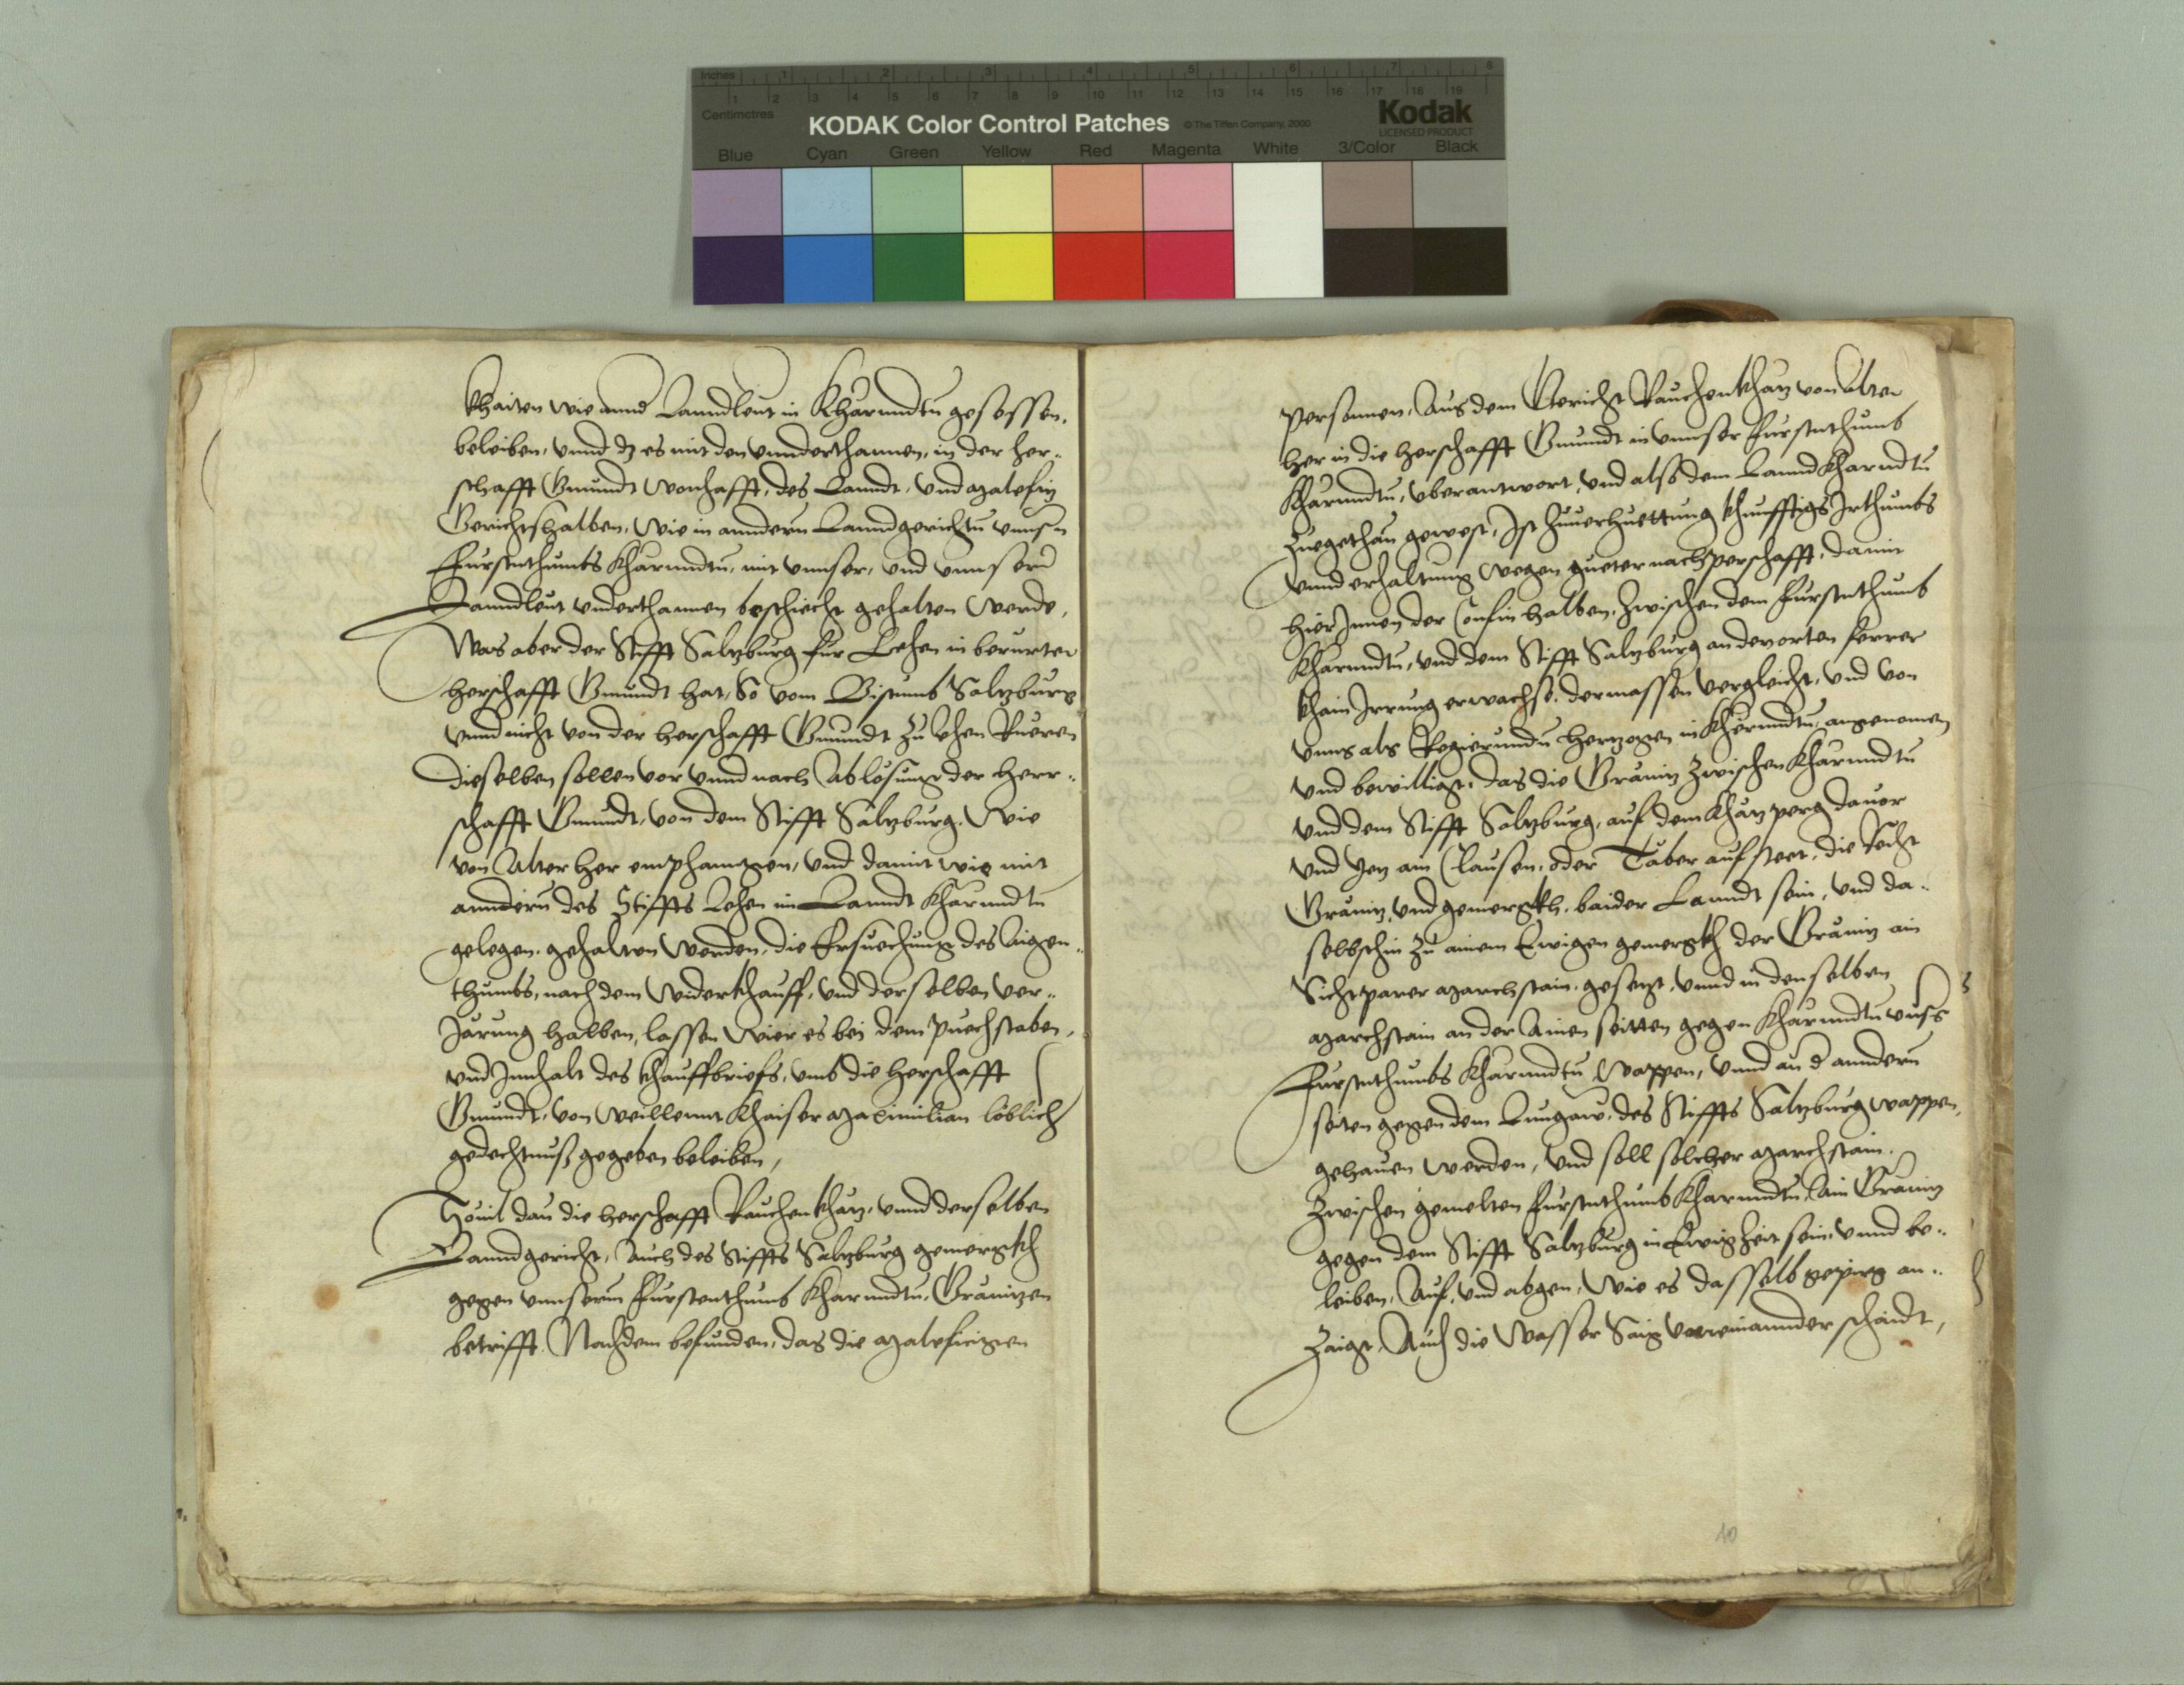 Inches 1 2 3 4 5 6 7 8
Centimetres 1 2 3 4 5 6 7 8 9 10 11 12 13 14 15 16 17 18 19
KODAK Color Control Patches © The Tiffen Company, 2000 Kodak
LICENSED PRODUCT
Blue Cyan Green Yellow Red Magenta White 3/Color Black
khaiten wie annd Lanndleut in Kharnndtn gesessen,
beleiben, vnnd dz es mit den vnnderthannen, in der her¨
schafft Gmundt wonhafft, des Lanndt, vnd malefiz
Gerichtshalben, wie in anndern Lanndgerichtn vnnsers
Furstnthumbs Kharnndtn, mit vnnser, vnd vnnsern
Lanndleut vnderthannen beschiecht gehalten werde,
Was aber der Stifft Saltzburg fur Lehen in berurter
herschafft Gmundt hat, So vom Bistumb Saltzburg
vnnd nicht von der herschafft Gmundt zu lehen Rueren
dieselben sollen vor vnnd nach Ablösung der herr¨
schafft Gmundt, von dem Stifft Saltzburg, Wie
von Alter her emphanngen, vnd damit wie mit
anndern des Stiffts Lehen im Lanndt Kharnndtn
gelegen, gehalten werden, die Ersuechung des Aigen¨
thumbs, nach dem Widerkhauff, vnd derselben ver¨
Jarung halben, lassen Wier es bei dem puechstaben,
vnd Innhalt des khauffbriefs, vmb die herschafft
Gmundt, von weillennt Khaiser Maximilian löblich
gedechtnuß gegeben beleiben,
Souil dan die herschafft Rauchenkhatz, vnnd derselben
Lanndgericht, Auch des Stiffts Saltzburg gemergkh
gegen vnnserm Furstenthumb Kharnndtn, Gränitzen
betrifft, Nachdem befunden, das die malefizigen
personnen, Aus dem Gericht Rauchenkhatz von Alter
her in die herschafft Gmundt in vnnser Furstnthumb
Kharnndtn, vberantwort, vnd also dem Lannd Kharndtn
zuegethan gewest, Ist zuuerhuettung khunfftigs Irthumbs
vnnd erhaltung wegen gueter nachperschafft, damit
hier Innen der Confin halben, zwischen dem Furstnthumb
Kharnndtn, vnd dem Stifft Saltzburg an der orten ferrer
khain Irrung erwachse, dermassen vergleicht, vnd von
vnns als Regierundn Hertzogen in Kharnndtn, angenomen
vnd bewilligt, das die Gränitz zwischen Kharnndtn
vnd dem Stifft Saltzburg, auf dem Khatzperg dauor
vnd yetz ain Clausen, oder Täber auf steet, die Recht
Gränitz, vnd gemergkh, baider Lanndt sein, vnd da¨
selbsthin zu ainem Ewigen gemergkh der Gränitz ain
Sichtparer marchstain, gesetzt, vnnd in denselben
marchstain an der Ainen seitten gegen Kharnndtn vnsers
Furstnthumbs Kharnndtn Wappen, vnnd an d anndern
seiten gegen dem Lungaw, des Stiffts Saltzburg wappen,
gehauen werden, vnd soll solcher marchstain,
zwischen gemelten Furstnthumb Kharnndtn, ain Gränitz
gegen dem Stifft Saltzburg in Ewigkeit sein, vnnd be¨
leiben, Auf, vnd abgen, Wie es dasselb gepirg an¨
zaigt, Auch die Wasser Saig voneinannder schaidt,
10